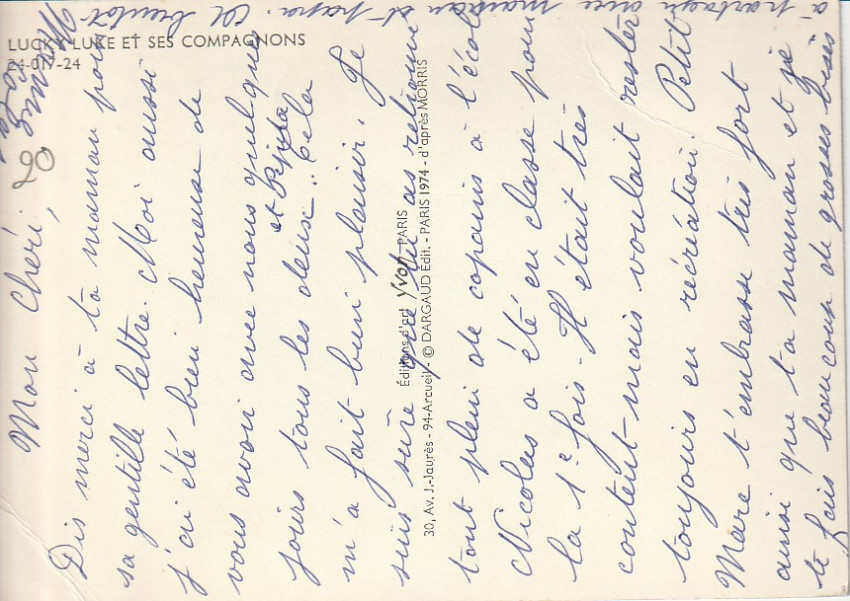 LUCKY LUKE ET SES COMPAGNONS
24-017-24
Mon Chéri,
Dis merci à ta maman pour
sa gentille lettre. Moi aussi
j'ai été bien heureuse de
vous avoir avec nous quelques
jours tous les deux et Pépita. Cela
m'a fait bien plaisir. Je
suis sûre que tu as retrouvé
tout plein de copains à l'école
Nicolas a été en classe pour
la 1e fois. Il était très
content mais voulait rester
toujours en récréation. Petit
Marc t'embrasse très fort
ainsi que ta maman et je
te fais beaucoup de grosses bises
à partager avec maman et papa. A bientôt
Mémé
Éditions d'art Yvon - PARIS
30, Av. J.-Jaurès - 94-Arcueil - © DARGAUD Édit. - PARIS 1974 - d'après MORRIS